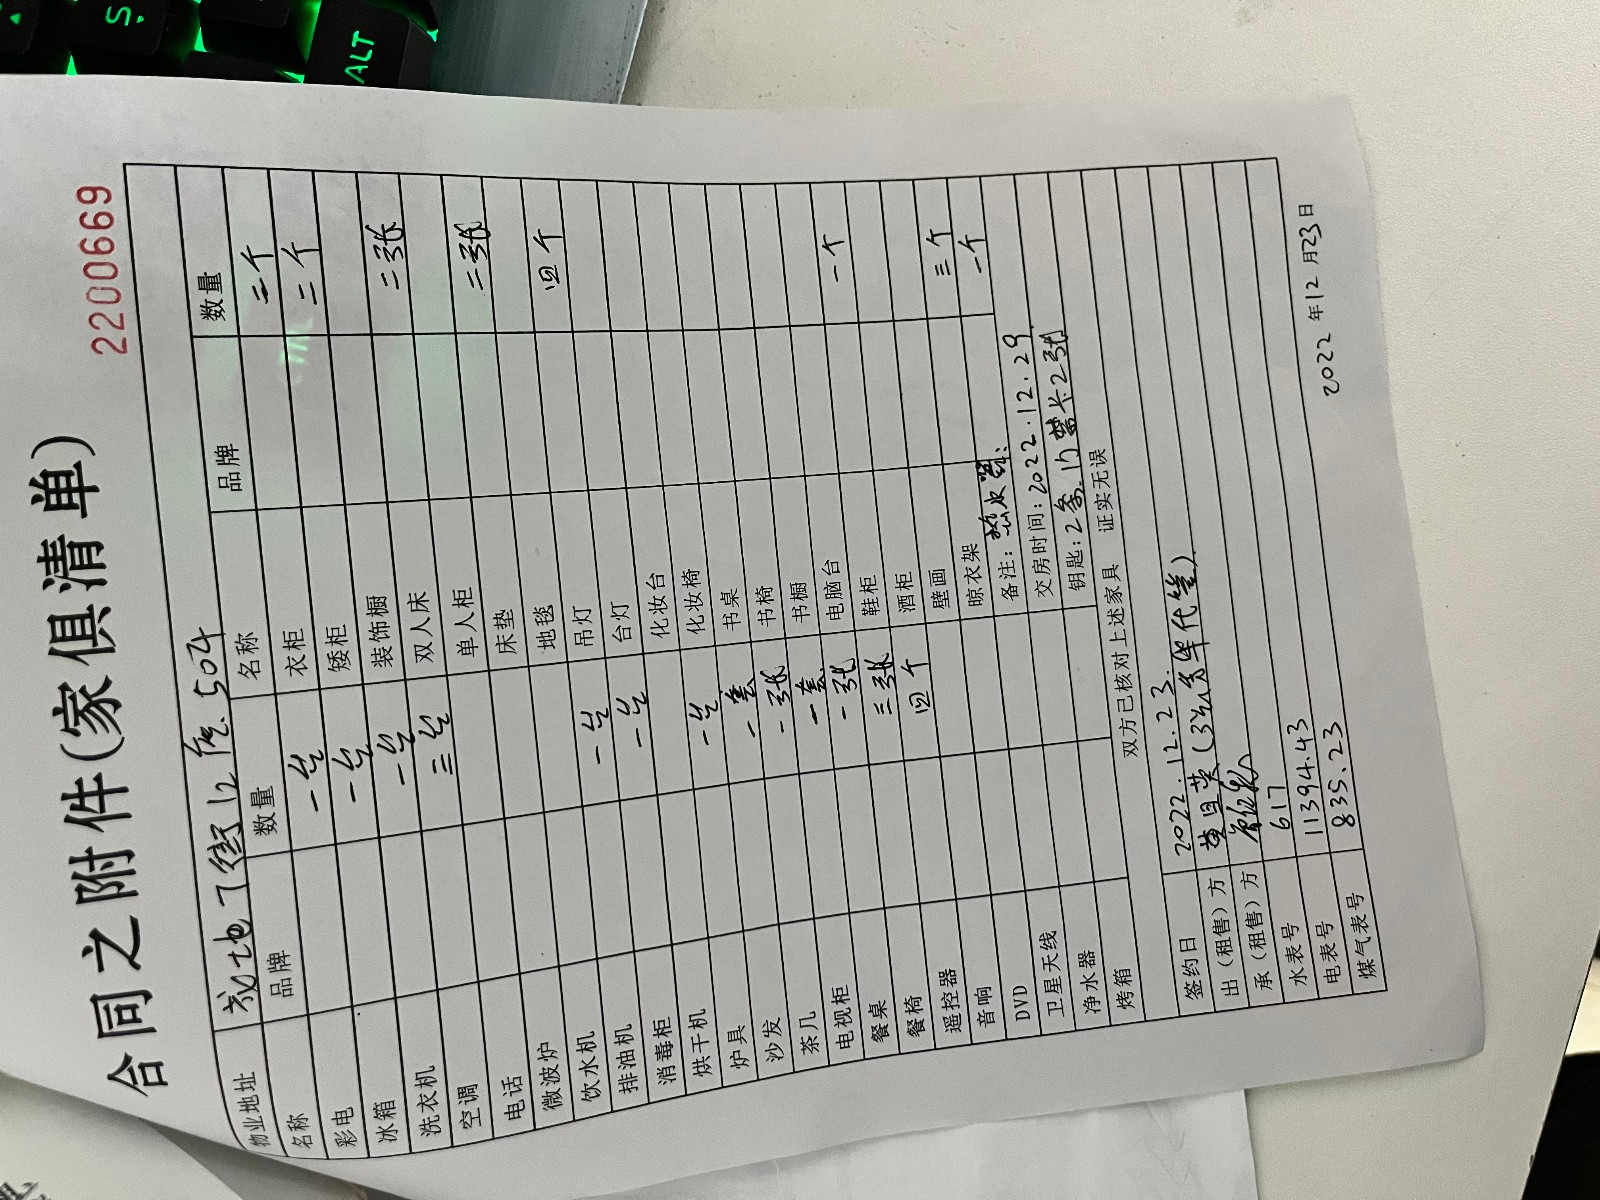 合同之附件(家俱清单)
2200669
物业地址 龙地丁街12座504
名称 品牌 数量 名称 品牌 数量
彩电 一台 衣柜 三个
冰箱 一台 矮柜 二个
洗衣机 一台 装饰橱
空调 三台 双人床 二张
电话 单人柜
微波炉 床垫 二张
饮水机 地毯
排油机 一台 吊灯 四个
消毒柜 一台 台灯
烘干机 化妆台
炉具 一台 化妆椅
沙发 一套 书桌
茶几 一张 书椅
电视柜 一套 书橱
餐桌 一张 电脑台 一个
餐椅 三张 鞋柜
遥控器 四个 酒柜
音响 壁画 三个
DVD 晾衣架 一个
卫星天线 备注：热水器：
净水器 交房时间：2022.12.29
烤箱 钥匙：2条 门禁卡2张
双方已核对上述家具 证实无误
签约日 2022.12.23.
出（租售）方 黄 代签）
承（租售）方
水表号 617
电表号 11394.43
煤气表号 835.23
2022年12月23日
S
ALT